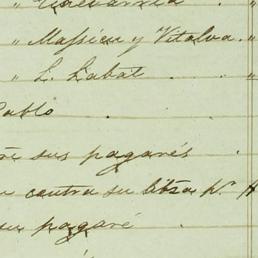 " Massieu y Vitalva. "
" L. Labat "
Pablo
sus pagarés
contra su libza pr.
su pagaré